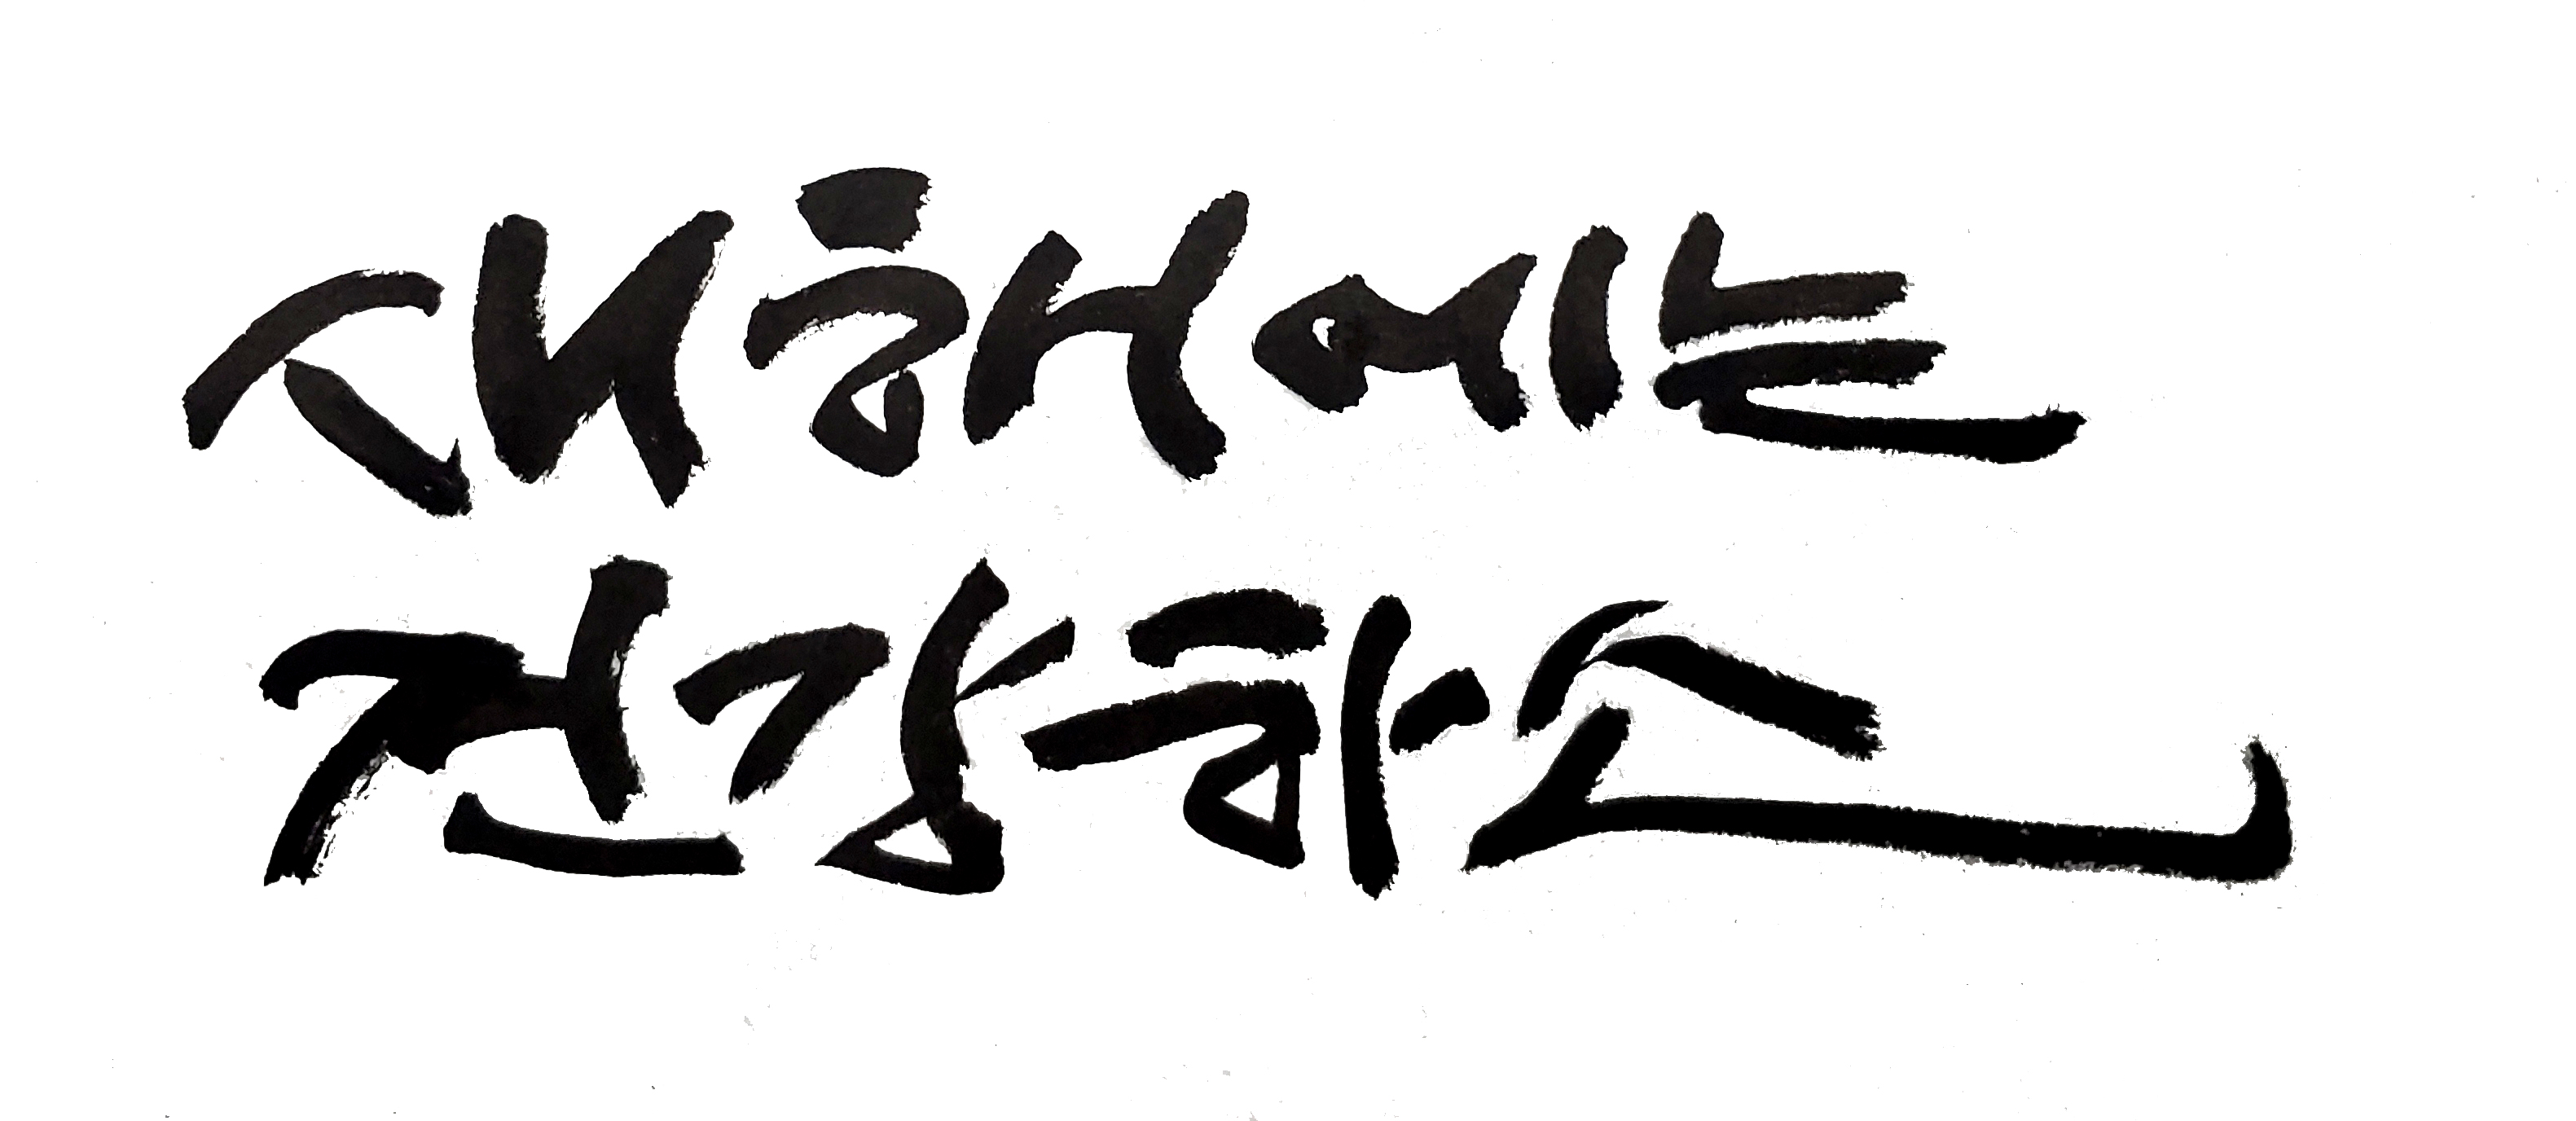 새해에는
건강하소